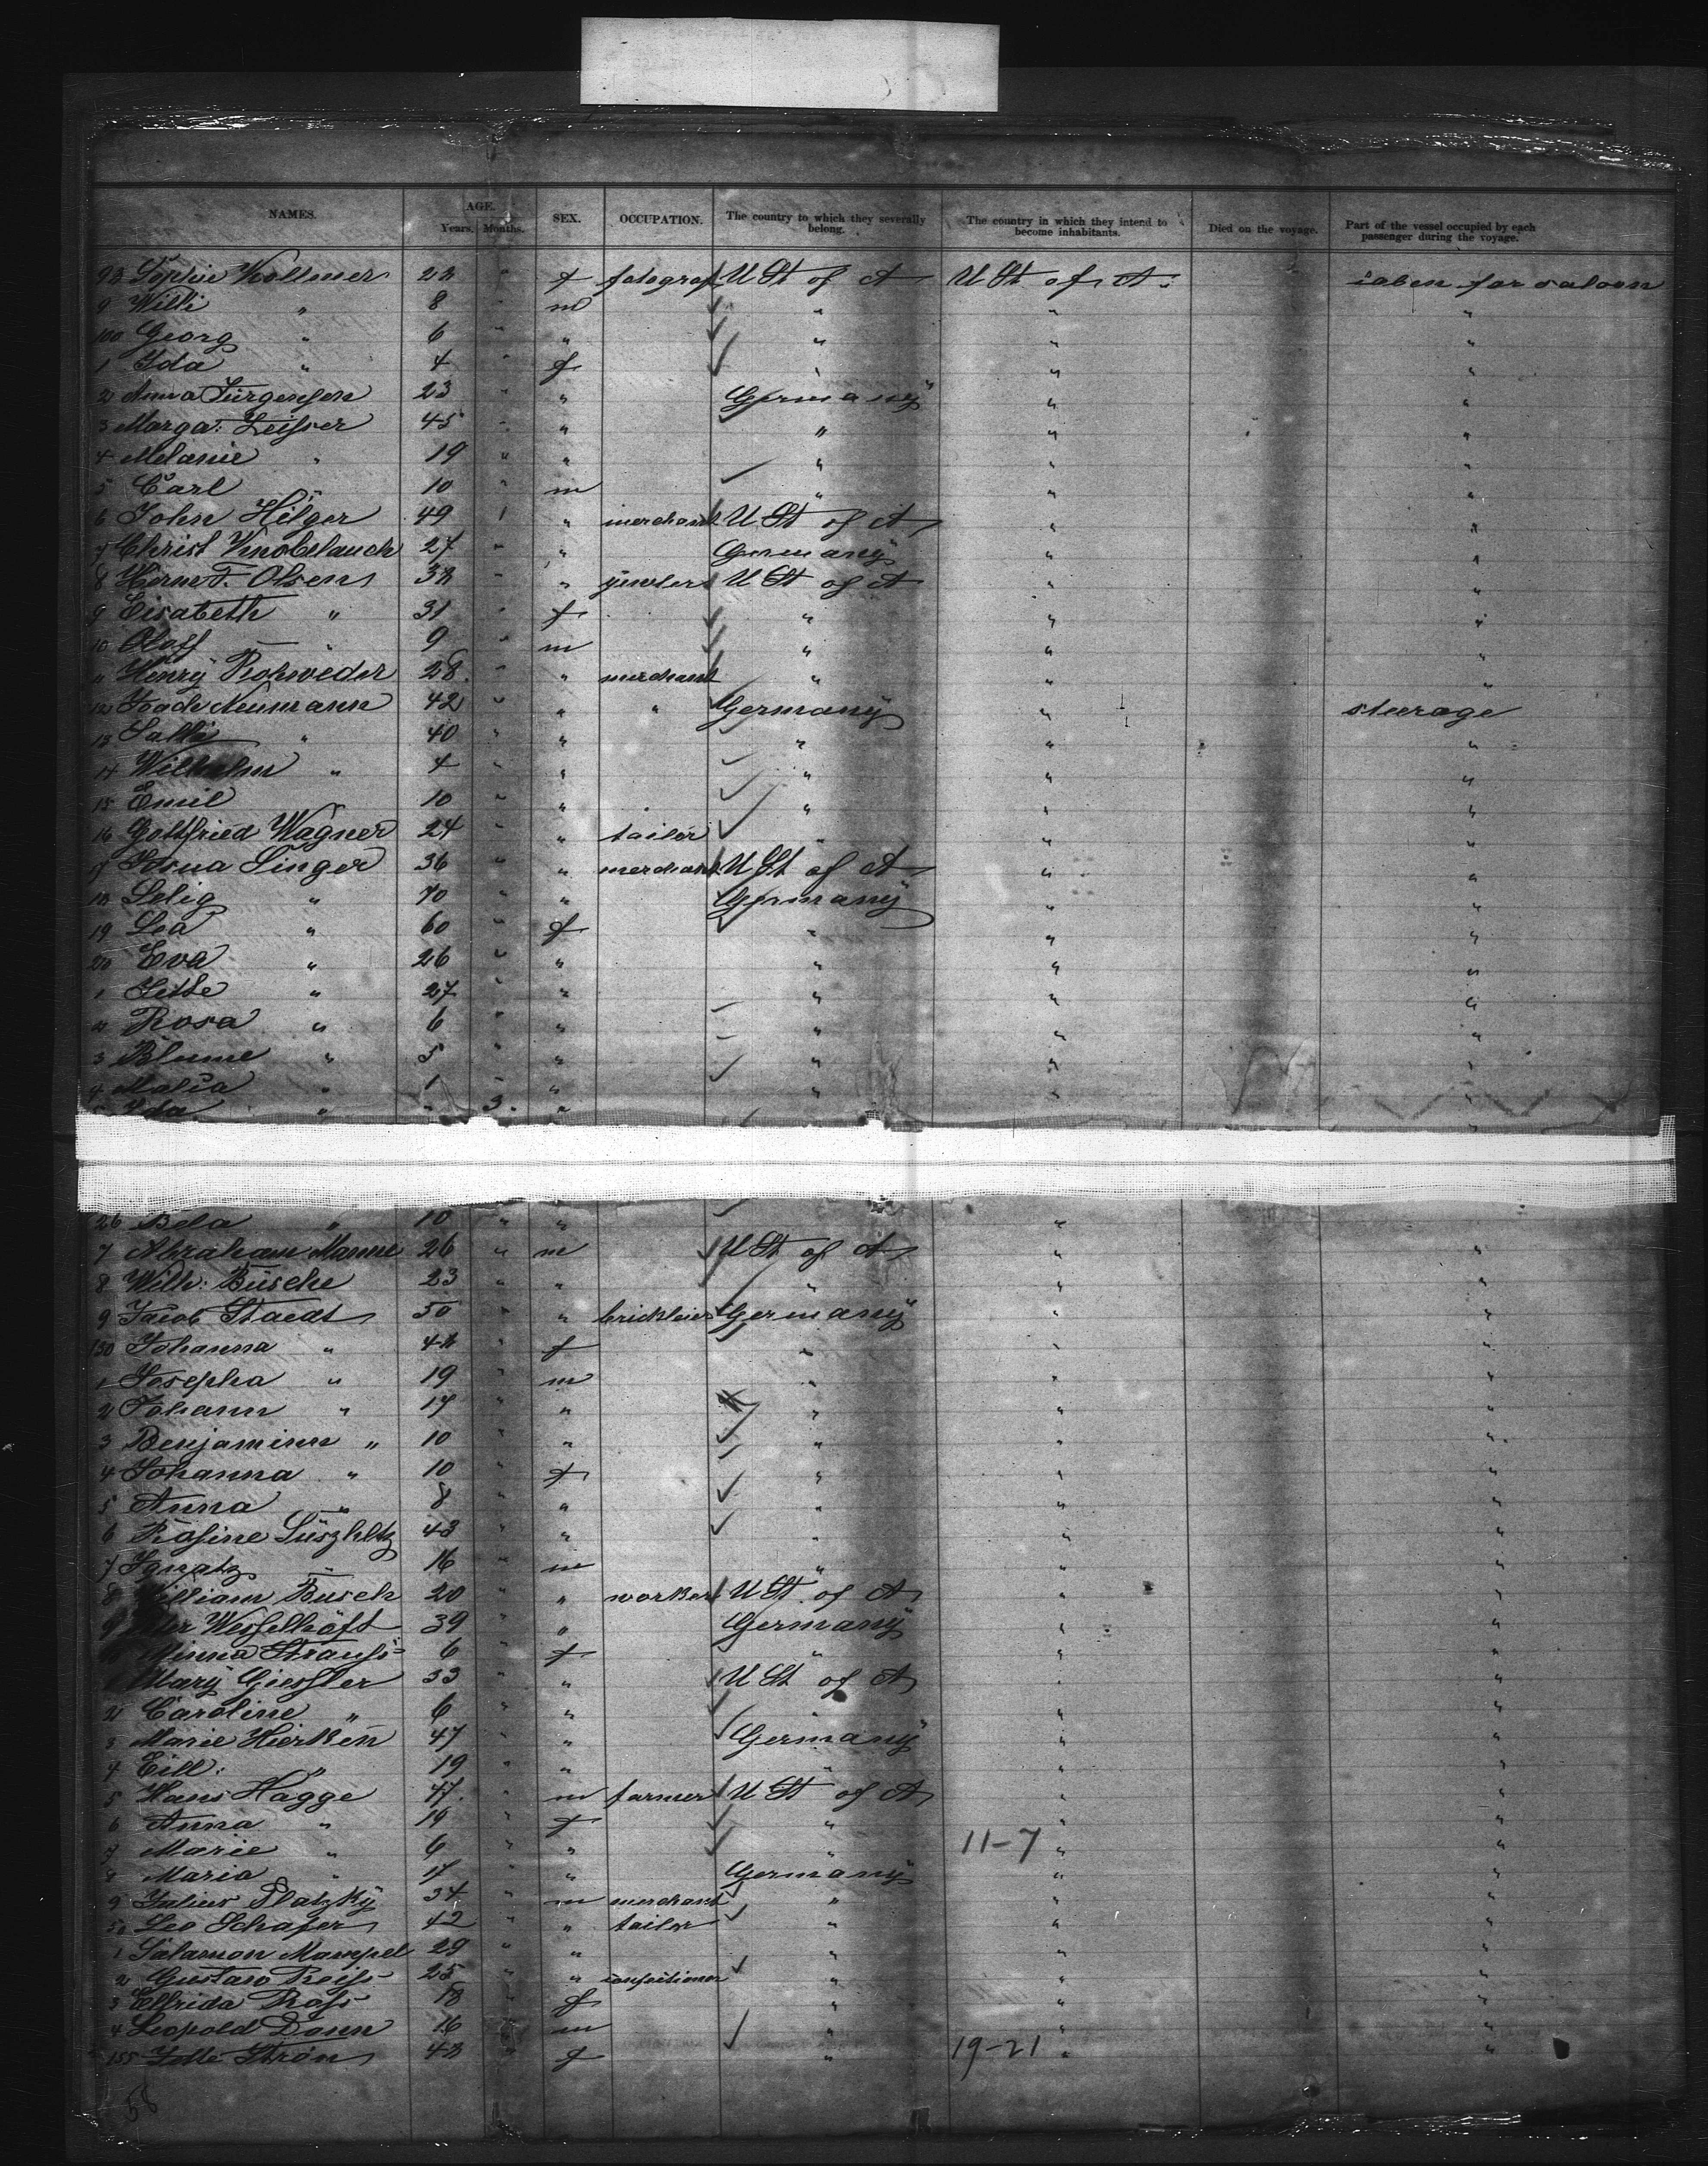 NAMES. AGE. SEX. OCCUPATION. The country to which they severally belong. The country in which they intend to become inhabitants. Died on the voyage. Part of the vessel occupied by each passenger during the voyage.
Years. Months.
98 Sophie Kollmer 28 " f fotograf U St of A U St of A. caben for saloon
9 Willi " 8 " m " " "
100 Georg " 6 " " " " "
1 Ida " 4 " f " " "
2 Anna Jürgensen 23 " " Germany " "
3 Marga: Leisser 45 " " " " "
4 Melanie " 19 " " " " "
5 Carl " 10 " m " " "
6 John Hilger 49 1 " merchant U St of A " "
7 Christ Knobelauch 27 " " Germany " "
8 Herm F. Olsen 38 " " juwler U St of A " "
9 Elsabeth " 31 " f " " "
10 Oloff " 9 " m " " "
11 Henry Rohweder 28 " " merchant " " "
12 Joach Neumann 42 " " " Germany " steerage
13 Salli " 40 " " " " "
14 Wilhelm " 4 " " " " "
15 Emil " 10 " " " " "
16 Gottfried Wagner 24 " " tailor " " "
17 Singer 36 " " merchant U St of A " "
18 Selig " 70 " " Germany " "
19 Lea " 60 " f " " "
20 Eva " 26 " " " " "
1 Jette " 27 " " " " "
2 Rosa " 6 " " " " "
3 Blume " 5 " " " " "
4 Malia " 1 " " " " "
Ida " " 3 "
26 Bela " 10 " " " "
7 Abraham 26 " m U St of A " "
8 Wilh: Büsche 23 " " " " "
9 Jacob Staedt 50 " " brickleier Germany " "
130 Johanna " 48 " f " " "
1 Josepha " 19 " m " " "
2 Johann " 17 " " " " "
3 Benjaminn " 10 " " " " "
4 Johanna " 10 " f " " "
5 Anna " 8 " " " " "
6 Rosine 43 " " " " "
7 Ignatz " 16 " m " " "
8 William Busch 20 " " worker U St. of A " "
9 Wesselhöft 39 " " Germany " "
Minna Strauss 6 " f " " "
Mary Giessler 33 " " U St of A " "
2 Caroline " 6 " " " "
3 Marie Hierken 47 " " Germany " "
4 Eill: " 19 " " " " "
5 Hans Hagge 47 " m farmer U St of A " "
6 Anna " 19 " f " " "
7 Marie " 6 " " " 11-7 " "
8 Maria " 17 " " Germany " "
9 Julius Platzky 34 " m merchant " " "
50 Leo Schafer 42 " " tailor " " "
1 Salamon Mampel 29 " " " " "
2 Gustav Reiss 25 " " confectioner " " "
3 Elfrida Rass 18 " f " " "
4 Leopold Dann 16 " m " " "
155 Strön 48 " f " 19-21 " "
58